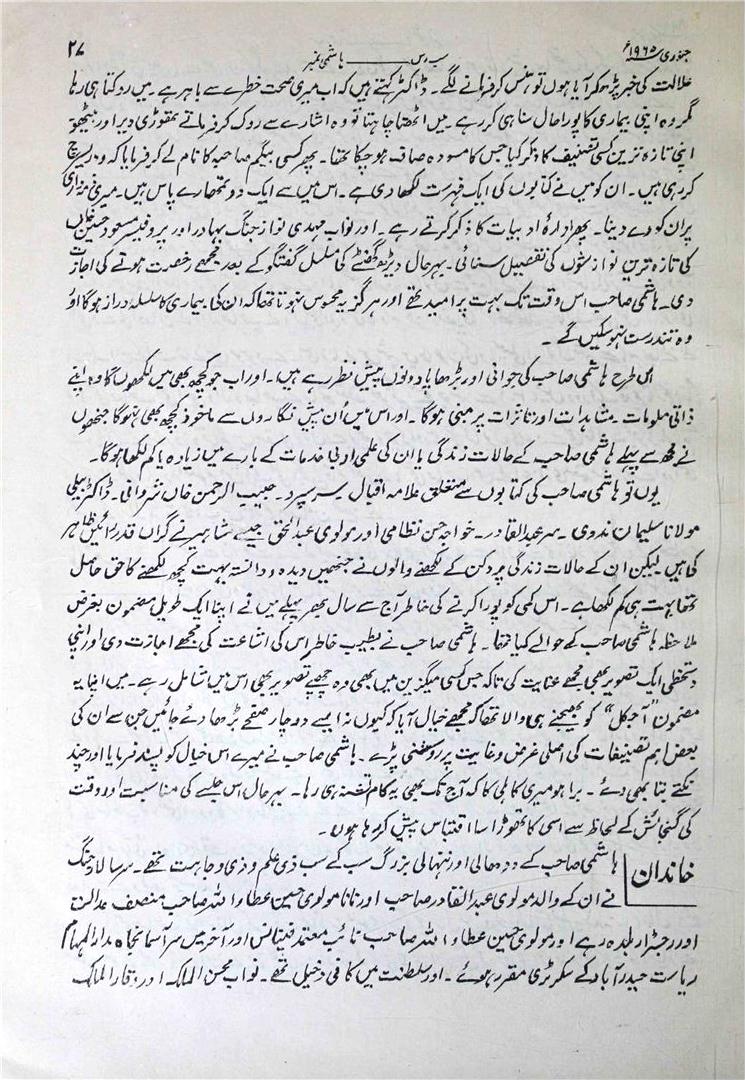 جنوری ۱۹۶۵ء سب رس ــــــ ہاشمی نمبر ۲۷
علالت کی خبر پڑھکر آیا ہوں تو ہنس کر فرمانے لگے۔ ڈاکٹر کہتے ہیں کہ اب میری صحت خطرے سے باہر ہے۔ میں روکتا ہی رہا
مگر وہ اپنی بیماری کا پورا حال سنا ہی کر رہے۔ میں اٹھنا چاہتا تو وہ اشارے سے روک کر فرماتے تھوڑی دیر اور بیٹھو
اپنی تازہ ترین کسی تصنیف کا ذکر کیا جس کا مسودہ صاف ہو چکا تھا۔ پھر کسی بیگم صاحبہ کا نام لے کر فرمایا کہ وہ ریسرچ
کر رہی ہیں۔ ان کو میں نے کتابوں کی ایک فہرست لکھا دی ہے۔ اس میں سے ایک دو تمھارے پاس ہیں۔ میری ذمہ داری
پر ان کو دے دینا۔ پھر ادارۂ ادبیات کا ذکر کرتے رہے۔ اور نواب مہدی نواز جنگ بہادر اور پروفیسر مسعود حسین خاں
کی تازہ ترین نوازشوں کی تفصیل سنائی۔ بہرحال ڈیڑھ گھنٹے کی مسلسل گفتگو کے بعد مجھے رخصت ہونے کی اجازت
دی۔ ہاشمی صاحب اس وقت تک بہت پر امید تھے اور ہرگز یہ محسوس نہوتا تھا کہ ان کی بیماری کا سلسلہ دراز ہوگا اور
وہ تندرست نہو سکیں گے۔
اس طرح ہاشمی صاحب کی جوانی اور بڑھاپا دونوں پیش نظر رہے ہیں۔ اور اب جو کچھ بھی میں لکھوں گا وہ اپنے
ذاتی معلومات۔ مشاہدات اور تاثرات پر مبنی ہوگا۔ اور اس میں اُن پیش نگاروں سے ماخوذ کچھ بھی نہوگا جنھوں
نے مجھ سے پہلے ہاشمی صاحب کے حالات زندگی یا ان کی علمی ادبی خدمات کے بارے میں زیادہ یا کم لکھا ہوگا۔
یوں تو ہاشمی صاحب کی کتابوں سے متعلق علامہ اقبال۔ سر سپرو۔ حبیب الرحمن خاں شروانی۔ ڈاکٹر بیلی
مولانا سلیمان ندوی۔ سر عبدالقادر۔ خواجہ حسن نظامی اور مولوی عبدالحق جیسے مشاہیر نے گراں قدر رائیں ظاہر
کی ہیں لیکن ان کے حالات زندگی پر دکن کے لکھنے والوں نے جنھیں دیدہ و دانستہ بہت کچھ لکھنے کا حق حاصل
تھا بہت ہی کم لکھا ہے۔ اس کمی کو پورا کرنے کی خاطر آج سے سال بھر پہلے میں نے اپنا ایک طویل مضمون بغرض
ملاحظہ ہاشمی صاحب کے حوالے کیا تھا۔ ہاشمی صاحب نے بطیب خاطر اس کی اشاعت کی مجھے اجازت دی اور اپنی
دستخطی ایک تصویر بھی مجھے عنایت کی تاکہ جس کسی میگزین میں بھی وہ چھپے تصویر بھی اس میں شامل رہے۔ میں اپنا یہ
مضمون "آجکل" کو بھیجنے ہی والا تھا کہ مجھے خیال آیا کہ کیوں نہ ایسے دو چار صفحے بڑھا دئے جائیں جن سے ان کی
بعض اہم تصنیفات کی اصلی غرض و غایت پر روشنی پڑے۔ ہاشمی صاحب نے میرے اس خیال کو پسند فرمایا اور چند
نکتے بتا بھی دئے۔ برا ہو میری کاہلی کا کہ آج تک بھی یہ کام تشنہ ہی رہا۔ بہرحال اس جلسے کی مناسبت اور وقت
کی گنجائش کے لحاظ سے اسی کا تھوڑا سا اقتباس پیش کر رہا ہوں۔
خاندان ہاشمی صاحب کے ددھیالی اور ننہالی بزرگ سب کے سب ذی علم و ذی وجاہت تھے۔ سر سالار جنگ
نے ان کے والد مولوی عبدالقادر صاحب اور نانا مولوی حسین عطاء اللہ صاحب منصف عدالت
اور رجسٹرار بلدہ رہے اور مولوی حسین عطاء اللہ صاحب نائب معتمد فینانس اور آخر میں سر آسمانجاہ مدارالمہام
ریاست حیدرآباد کے سکرٹری مقرر ہوئے۔ اور سلطنت میں کافی دخیل تھے۔ نواب محسن الملک اور وقار الملک